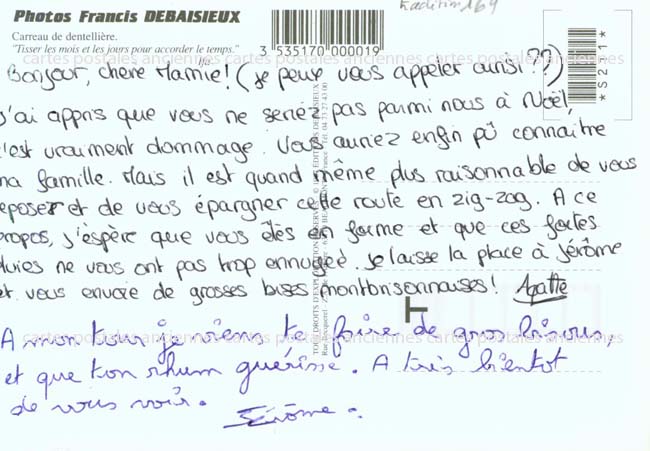 Photos Francis DEBAISIEUX
Carreau de dentellière.
"Tisser les mois et les jours pour accorder le temps."
Ifa
3 535170 000019
Tradition 164
*S211*
cartes postales anciennes cartes postales anciennes
Bonjour, chère Mamie! (je peux vous appeler ainsi??)
J'ai appris que vous ne seriez pas parmi nous à Noël,
c'est vraiment dommage. Vous auriez enfin pû connaitre
ma famille. Mais il est quand même plus raisonnable de vous
reposer et de vous épargner cette route en zig-zag. A ce
propos, j'espère que vous êtes en forme et que ces fortes
pluies ne vous ont pas trop ennuyée. Je laisse la place à Jérôme
et vous envoie de grosses bises montbrisonnaises! Agatte
cartes postales anciennes cartes postales anciennes
A mon tour je viens te faire de gros bisous,
et que ton rhum guérisse. A très bientot
de vous voir. Jérôme.